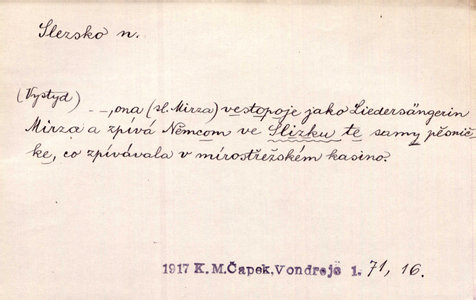 Slezsko n.
(Vystyd) ..., ona (sl. Mirza) vestopoje jako Liedersängerin
Mirza a zpívá Němcom ve Slizku te samy pěsnič
ke, co zpívávala v mírostřežském kasino?
1917 K.M.Čapek.Vondrejc 1. 71, 16.